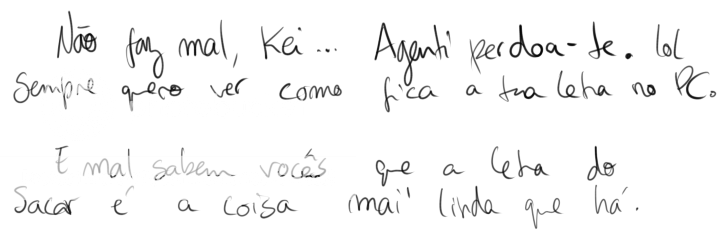 Não faz mal, Kei... Agenti perdoa-te. lol
Sempre quero ver como fica a tua letra no PC.
E mal sabem vocês que a letra do
Sacar é a coisa mai' linda que há.